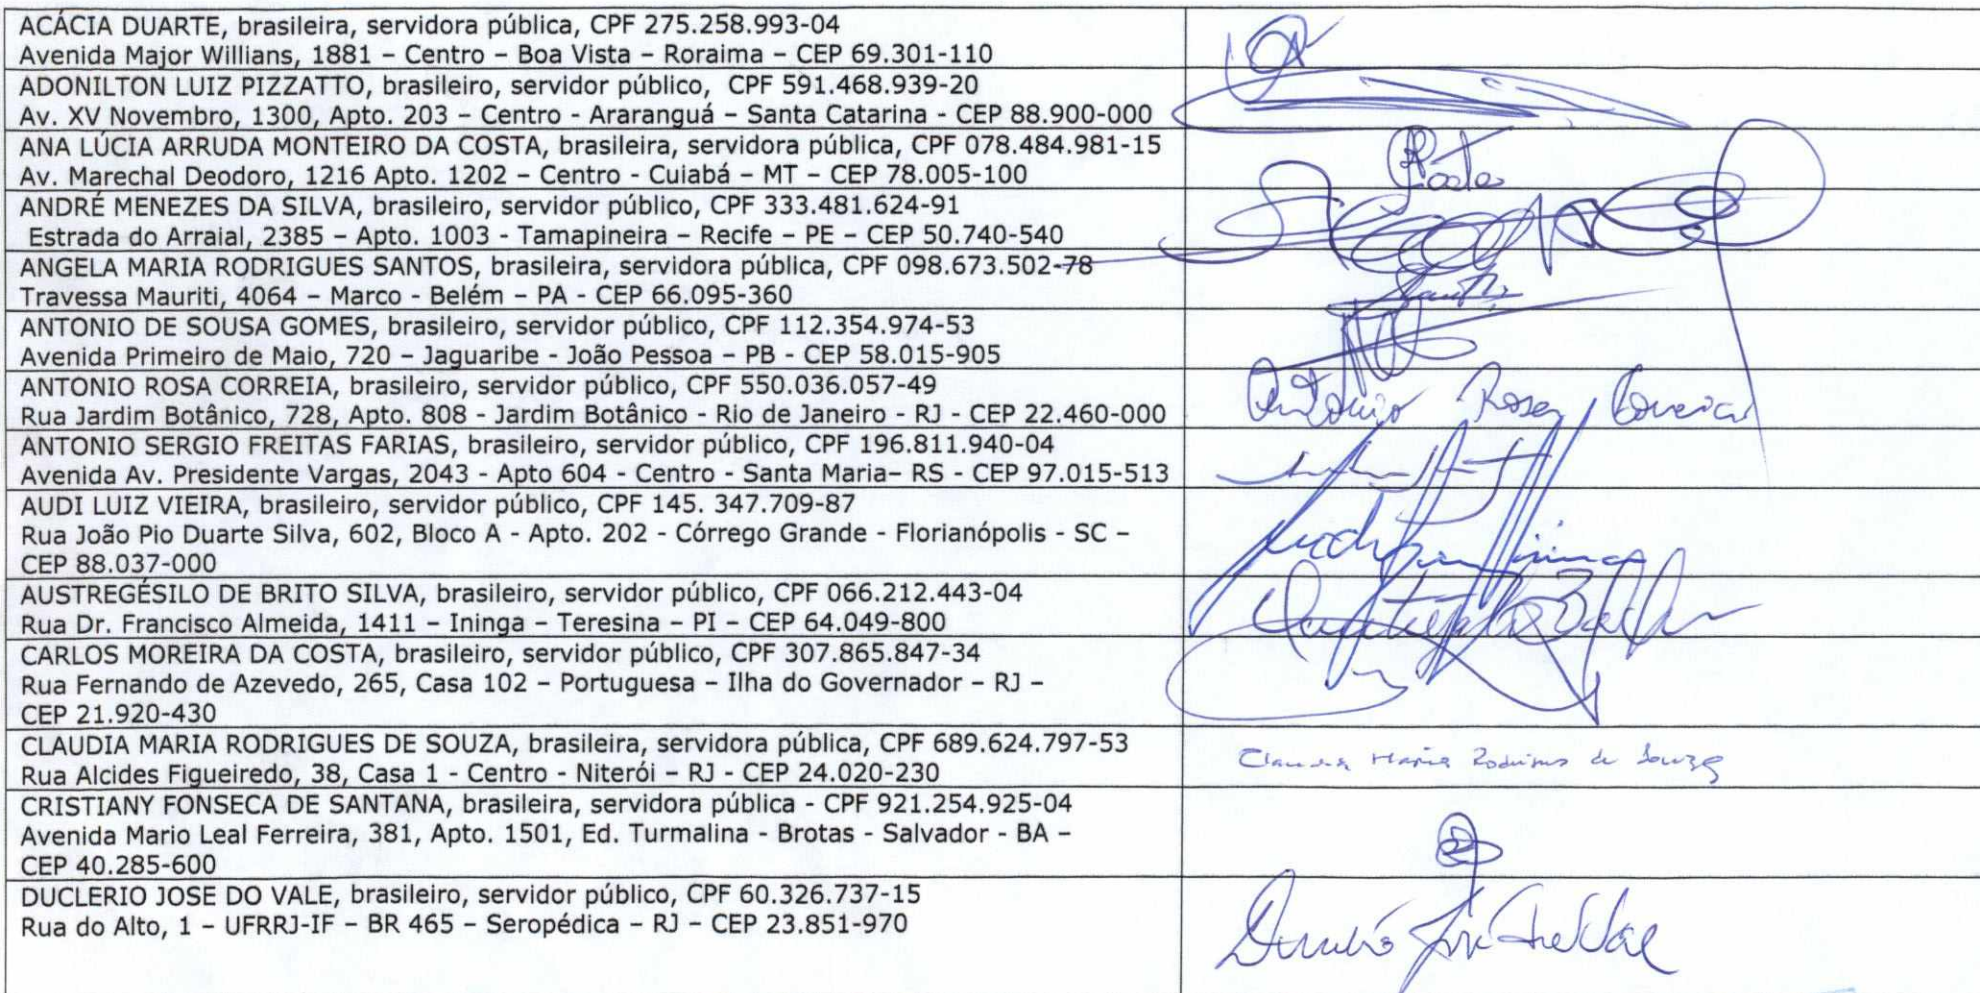 ACÁCIA DUARTE, brasileira, servidora pública, CPF 275.258.993-04
Avenida Major Willians, 1881 – Centro – Boa Vista – Roraima – CEP 69.301-110
ADONILTON LUIZ PIZZATTO, brasileiro, servidor público, CPF 591.468.939-20
Av. XV Novembro, 1300, Apto. 203 – Centro - Araranguá – Santa Catarina - CEP 88.900-000
ANA LÚCIA ARRUDA MONTEIRO DA COSTA, brasileira, servidora pública, CPF 078.484.981-15
Av. Marechal Deodoro, 1216 Apto. 1202 – Centro - Cuiabá – MT – CEP 78.005-100
ANDRÉ MENEZES DA SILVA, brasileiro, servidor público, CPF 333.481.624-91
Estrada do Arraial, 2385 – Apto. 1003 - Tamapineira – Recife – PE – CEP 50.740-540
ANGELA MARIA RODRIGUES SANTOS, brasileira, servidora pública, CPF 098.673.502-78
Travessa Mauriti, 4064 – Marco - Belém – PA - CEP 66.095-360
ANTONIO DE SOUSA GOMES, brasileiro, servidor público, CPF 112.354.974-53
Avenida Primeiro de Maio, 720 – Jaguaribe - João Pessoa – PB - CEP 58.015-905
ANTONIO ROSA CORREIA, brasileiro, servidor público, CPF 550.036.057-49
Rua Jardim Botânico, 728, Apto. 808 - Jardim Botânico - Rio de Janeiro - RJ - CEP 22.460-000
Antonio Rosa Correia
ANTONIO SERGIO FREITAS FARIAS, brasileiro, servidor público, CPF 196.811.940-04
Avenida Av. Presidente Vargas, 2043 - Apto 604 - Centro - Santa Maria– RS - CEP 97.015-513
AUDI LUIZ VIEIRA, brasileiro, servidor público, CPF 145. 347.709-87
Rua João Pio Duarte Silva, 602, Bloco A - Apto. 202 - Córrego Grande - Florianópolis - SC –
CEP 88.037-000
AUSTREGÉSILO DE BRITO SILVA, brasileiro, servidor público, CPF 066.212.443-04
Rua Dr. Francisco Almeida, 1411 – Ininga – Teresina – PI – CEP 64.049-800
CARLOS MOREIRA DA COSTA, brasileiro, servidor público, CPF 307.865.847-34
Rua Fernando de Azevedo, 265, Casa 102 – Portuguesa – Ilha do Governador – RJ –
CEP 21.920-430
CLAUDIA MARIA RODRIGUES DE SOUZA, brasileira, servidora pública, CPF 689.624.797-53
Rua Alcides Figueiredo, 38, Casa 1 - Centro - Niterói – RJ - CEP 24.020-230
Claudia Maria Rodrigues de Souza
CRISTIANY FONSECA DE SANTANA, brasileira, servidora pública - CPF 921.254.925-04
Avenida Mario Leal Ferreira, 381, Apto. 1501, Ed. Turmalina - Brotas - Salvador - BA –
CEP 40.285-600
DUCLERIO JOSE DO VALE, brasileiro, servidor público, CPF 60.326.737-15
Rua do Alto, 1 – UFRRJ-IF – BR 465 – Seropédica – RJ – CEP 23.851-970